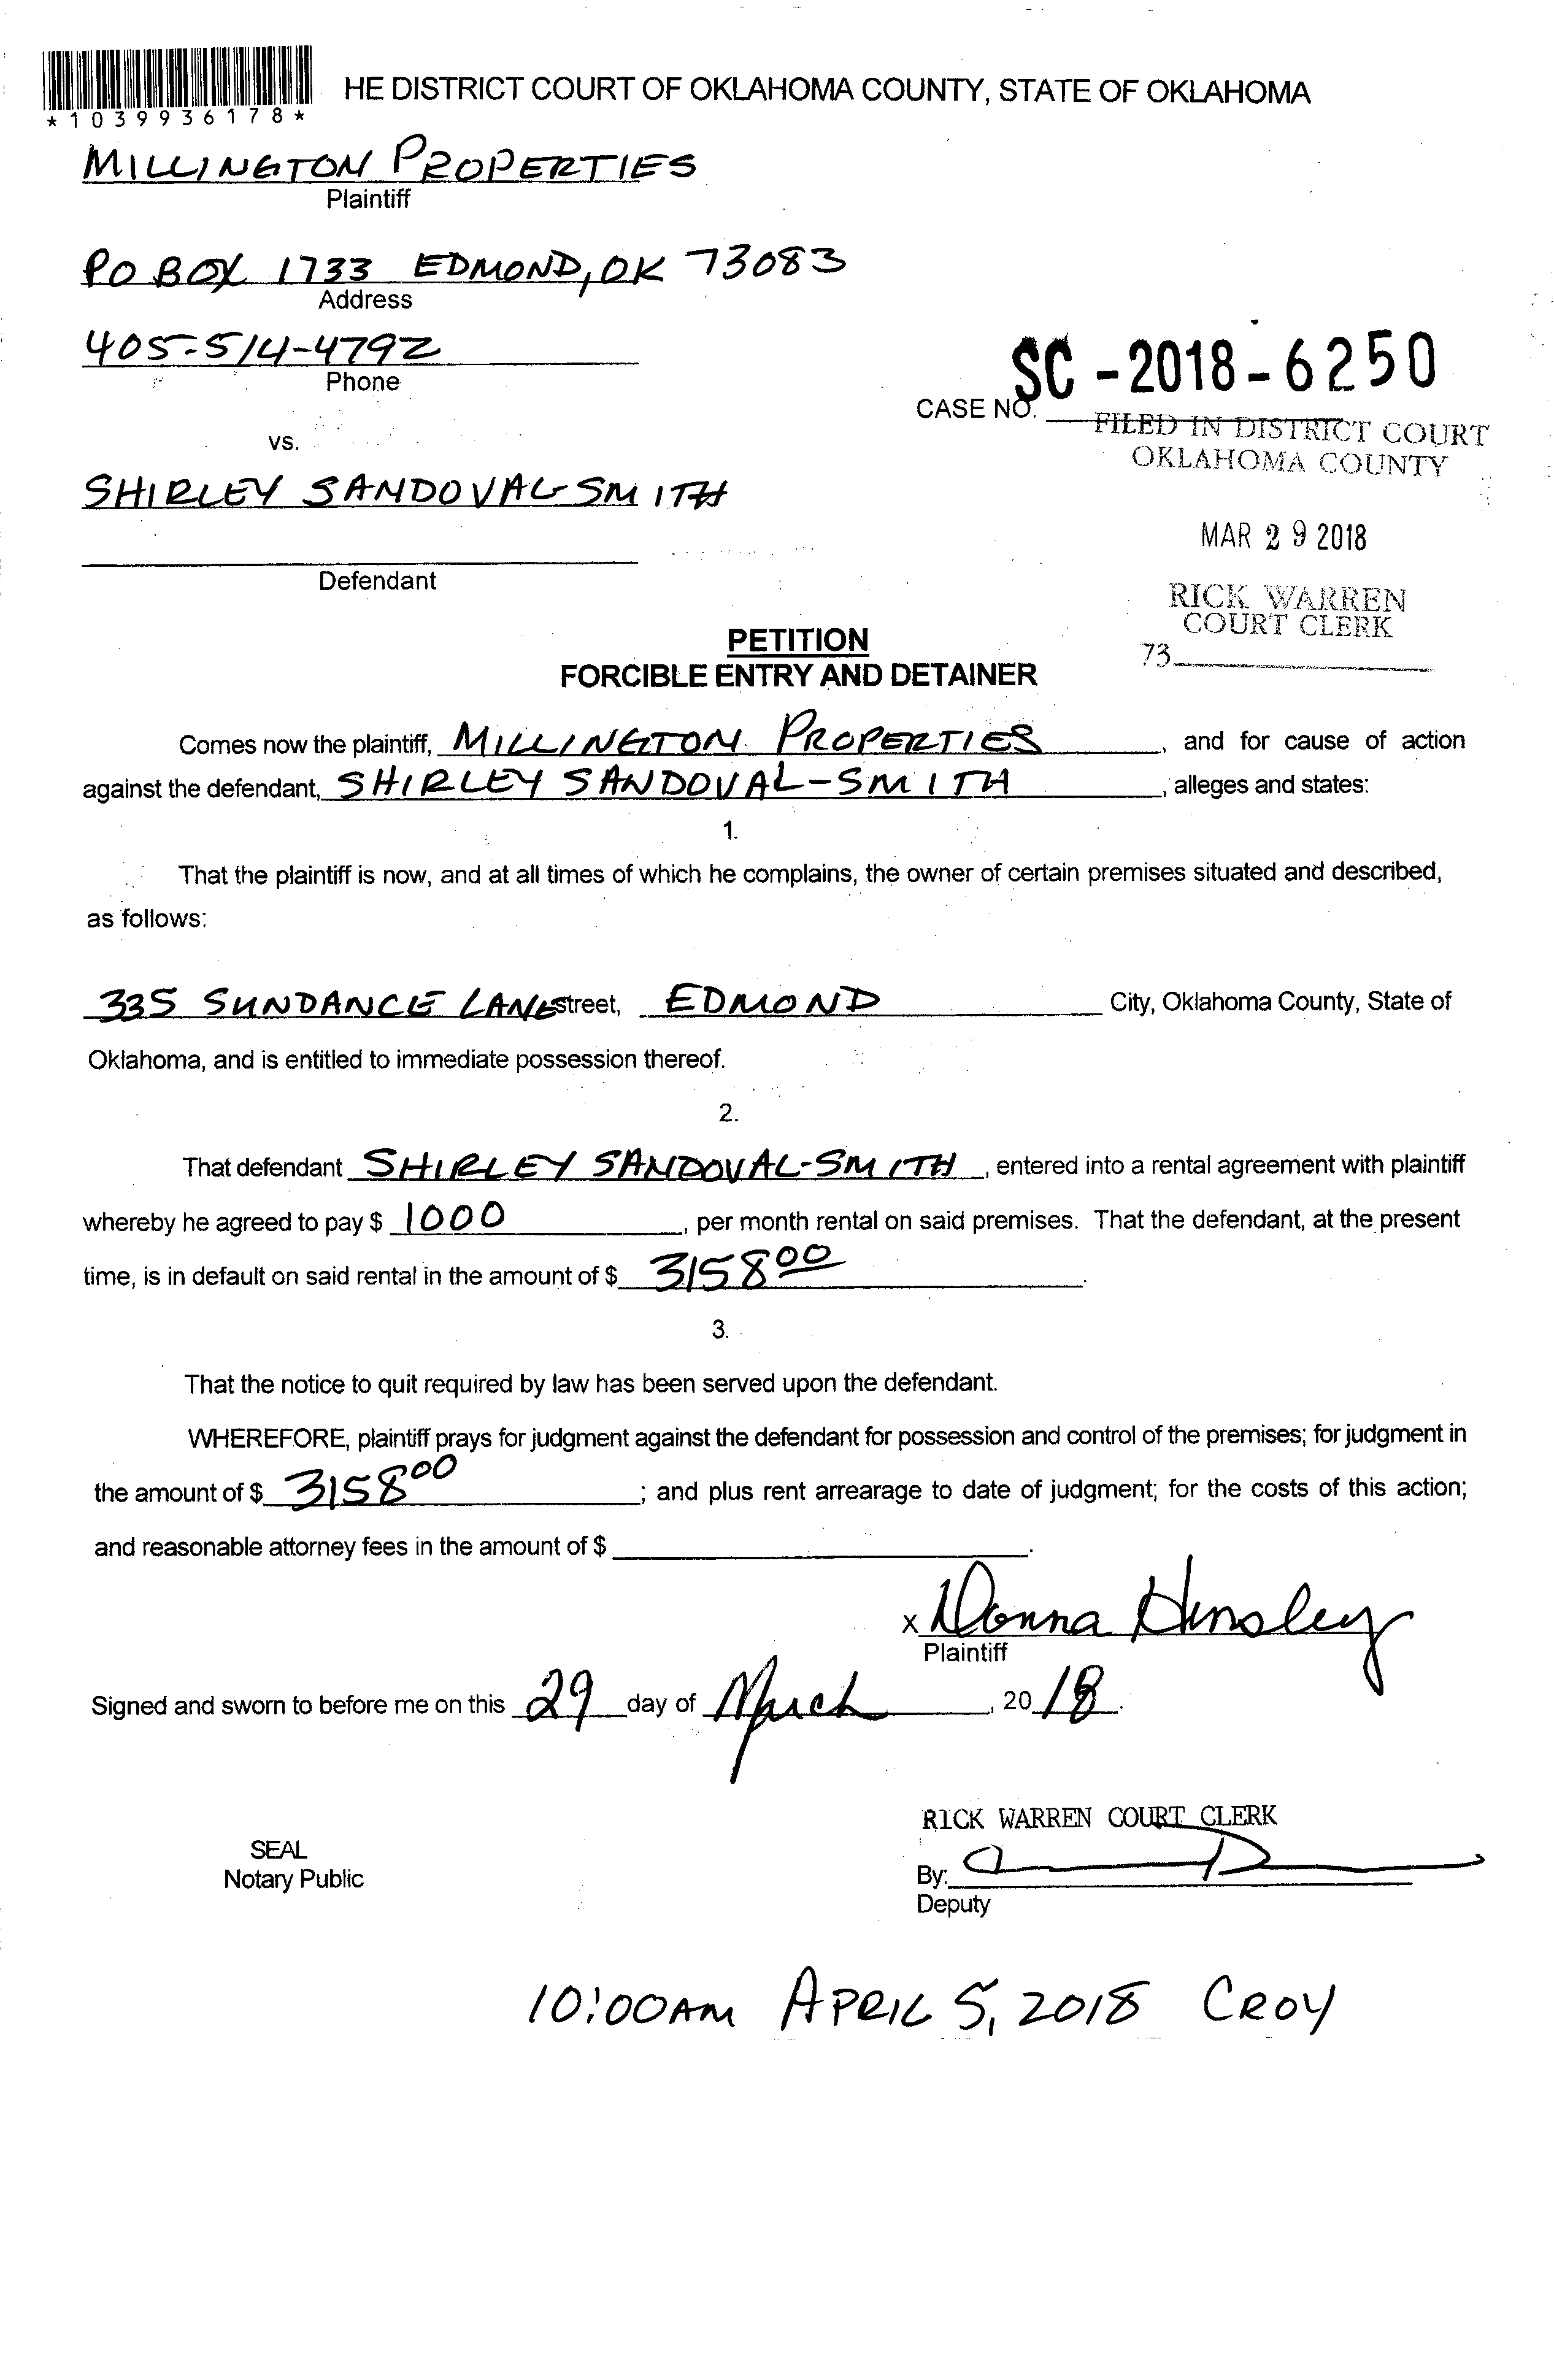 *1039936178*
HE DISTRICT COURT OF OKLAHOMA COUNTY, STATE OF OKLAHOMA
MILLINGTON PROPERTIES
Plaintiff
PO BOX 1733 EDMOND, OK 73083
Address
405-514-4792
Phone
SC-2018-6250
CASE NO.
FILED IN DISTRICT COURT
OKLAHOMA COUNTY
vs.
SHIRLEY SANDOVAL-SMITH
MAR 29 2018
Defendant
RICK WARREN
COURT CLERK
73
PETITION
FORCIBLE ENTRY AND DETAINER
Comes now the plaintiff, MILLINGTON PROPERTIES, and for cause of action
against the defendant, SHIRLEY SANDOVAL-SMITH, alleges and states:
1.
That the plaintiff is now, and at all times of which he complains, the owner of certain premises situated and described,
as follows:
335 SUNDANCE LANE street, EDMOND City, Oklahoma County, State of
Oklahoma, and is entitled to immediate possession thereof.
2.
That defendant SHIRLEY SANDOVAL-SMITH, entered into a rental agreement with plaintiff
whereby he agreed to pay $ 1000, per month rental on said premises. That the defendant, at the present
time, is in default on said rental in the amount of $ 3158 00.
3.
That the notice to quit required by law has been served upon the defendant.
WHEREFORE, plaintiff prays for judgment against the defendant for possession and control of the premises; for judgment in
the amount of $ 3158 00; and plus rent arrearage to date of judgment; for the costs of this action;
and reasonable attorney fees in the amount of $.
x Donna Hinsley
Plaintiff
Signed and sworn to before me on this 29 day of March, 20 18.
RICK WARREN COURT CLERK
SEAL
Notary Public
By:
Deputy
10:00AM APRIL 5, 2018 CROY